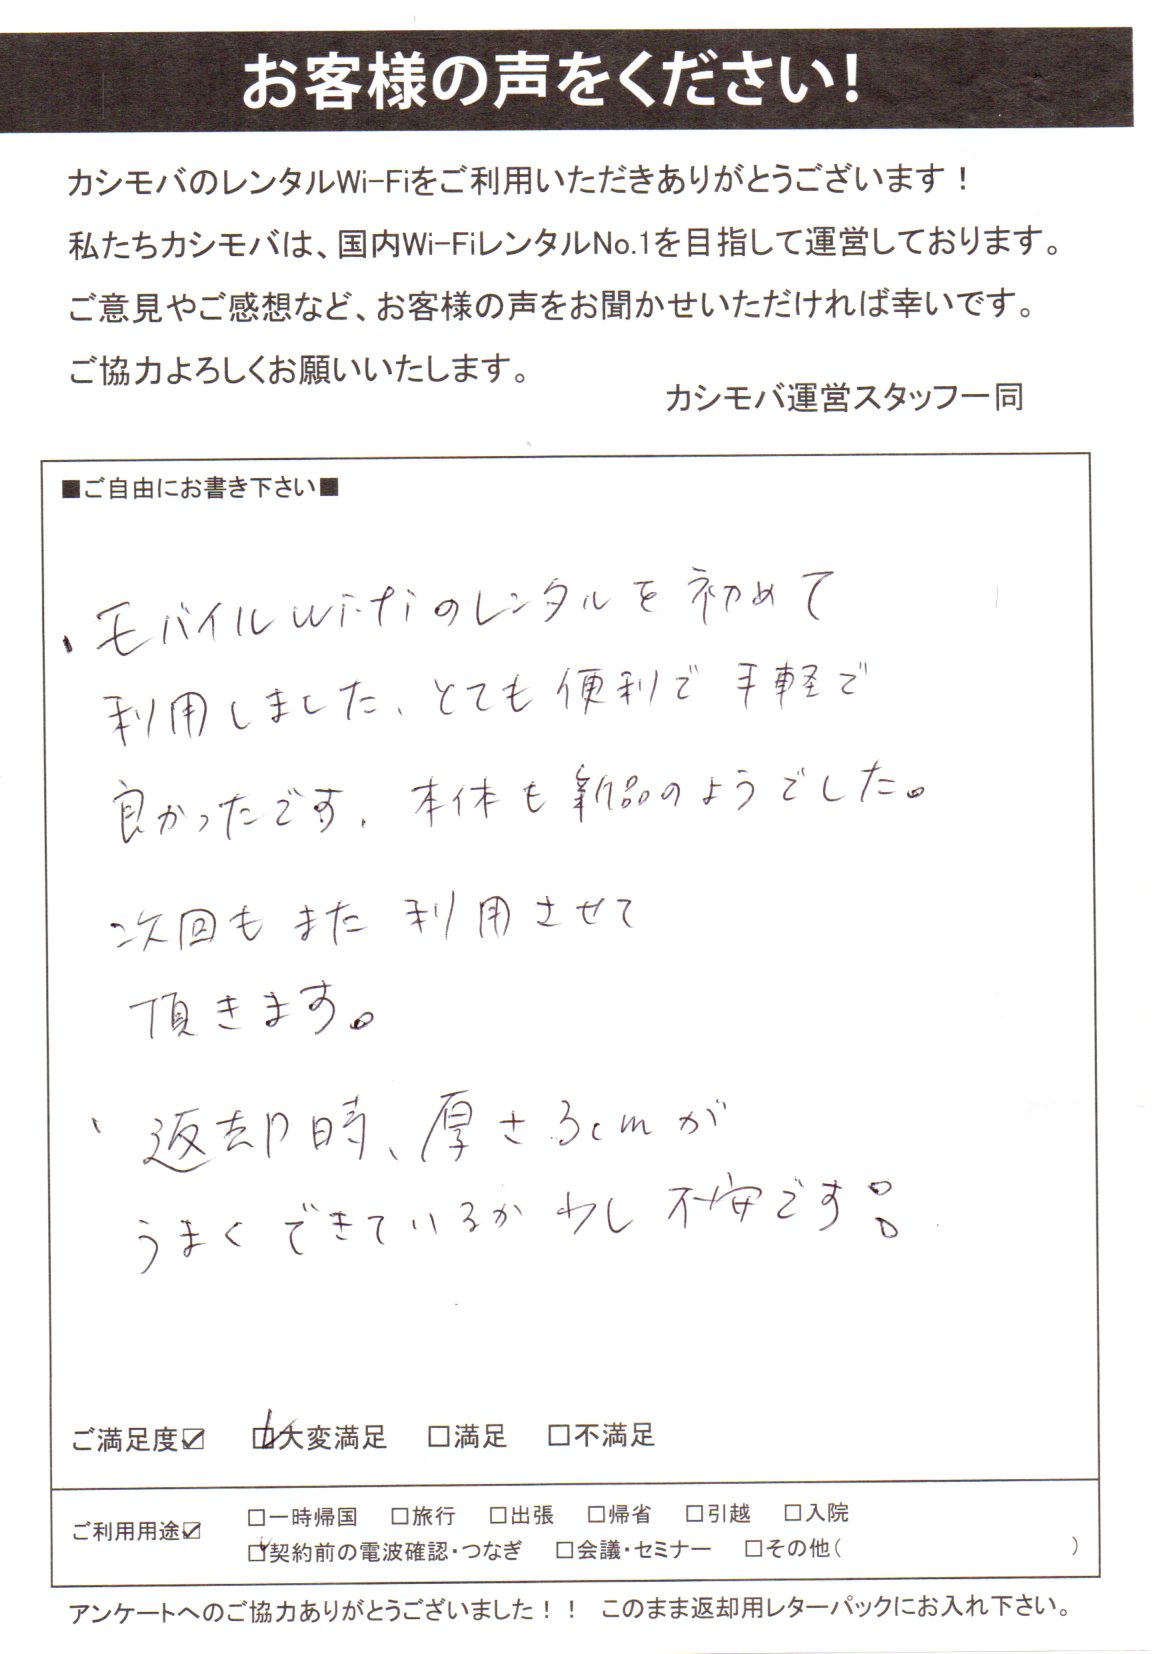 お客様の声をください!
カシモバのレンタルWi-Fiをご利用いただきありがとうございます!
私たちカシモバは、国内Wi-FiレンタルNo.1を目指して運営しております。
ご意見やご感想など、お客様の声をお聞かせいただければ幸いです。
ご協力よろしくお願いいたします。
カシモバ運営スタッフ一同
■ご自由にお書き下さい■
、モバイルWi-Fiのレンタルを初めて
利用しました、とても便利で手軽で
良かったです、本体も新品のようでした。
次回もまた利用させて
頂きます。
、返却時、厚さ3cmが
うまくできているか少し不安です。
ご満足度☑ ☑大変満足 □満足 □不満足
ご利用用途☑ □一時帰国 □旅行 □出張 □帰省 □引越 □入院
☑契約前の電波確認・つなぎ □会議・セミナー □その他( )
アンケートへのご協力ありがとうございました!! このまま返却用レターパックにお入れ下さい。